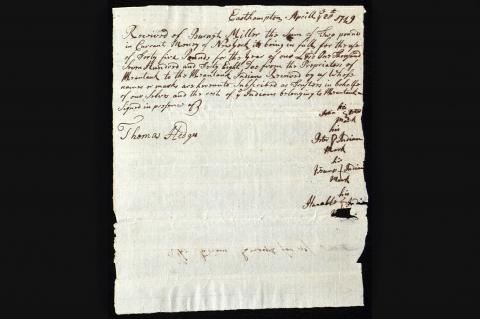 Easthampton April ye 20th 1749
Received of Burnet Miller the Sum of Two pounds
in Currant Money of Newyork it being in full for the use
of Forty five Pounds for the Year of our Lord One Thousand
Seven Hundred and Forty Eight Due from the Proprietors of
Meantauk to the Meantauk Indians Received by us Whose
names or marks are hereunto Subscribed as Trustees in behalf
of our Selves and the rest of ye Indians belonging to Meantauk
Signed in presence of
Thomas Hedges
his
mark
his
Peter Indian
Mark
his
Indian
Mark
his
Indian